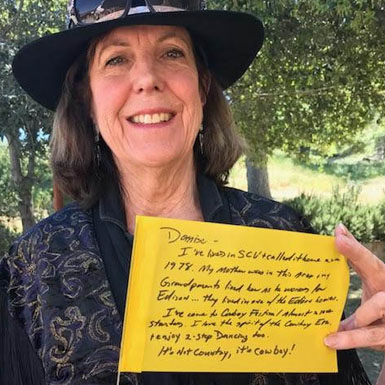 Denise -
I've lived in SCV & called it home since
1978. My Mother was in this area
Grandparents lived here as to workers for
Edison ... they lived in one of the Edison homes.
I've come to Cowboy Festival almost
I love the spirit of the Cowboy Era,
& enjoy 2-step Dancing too.
It's Not Country, it's Cowboy!